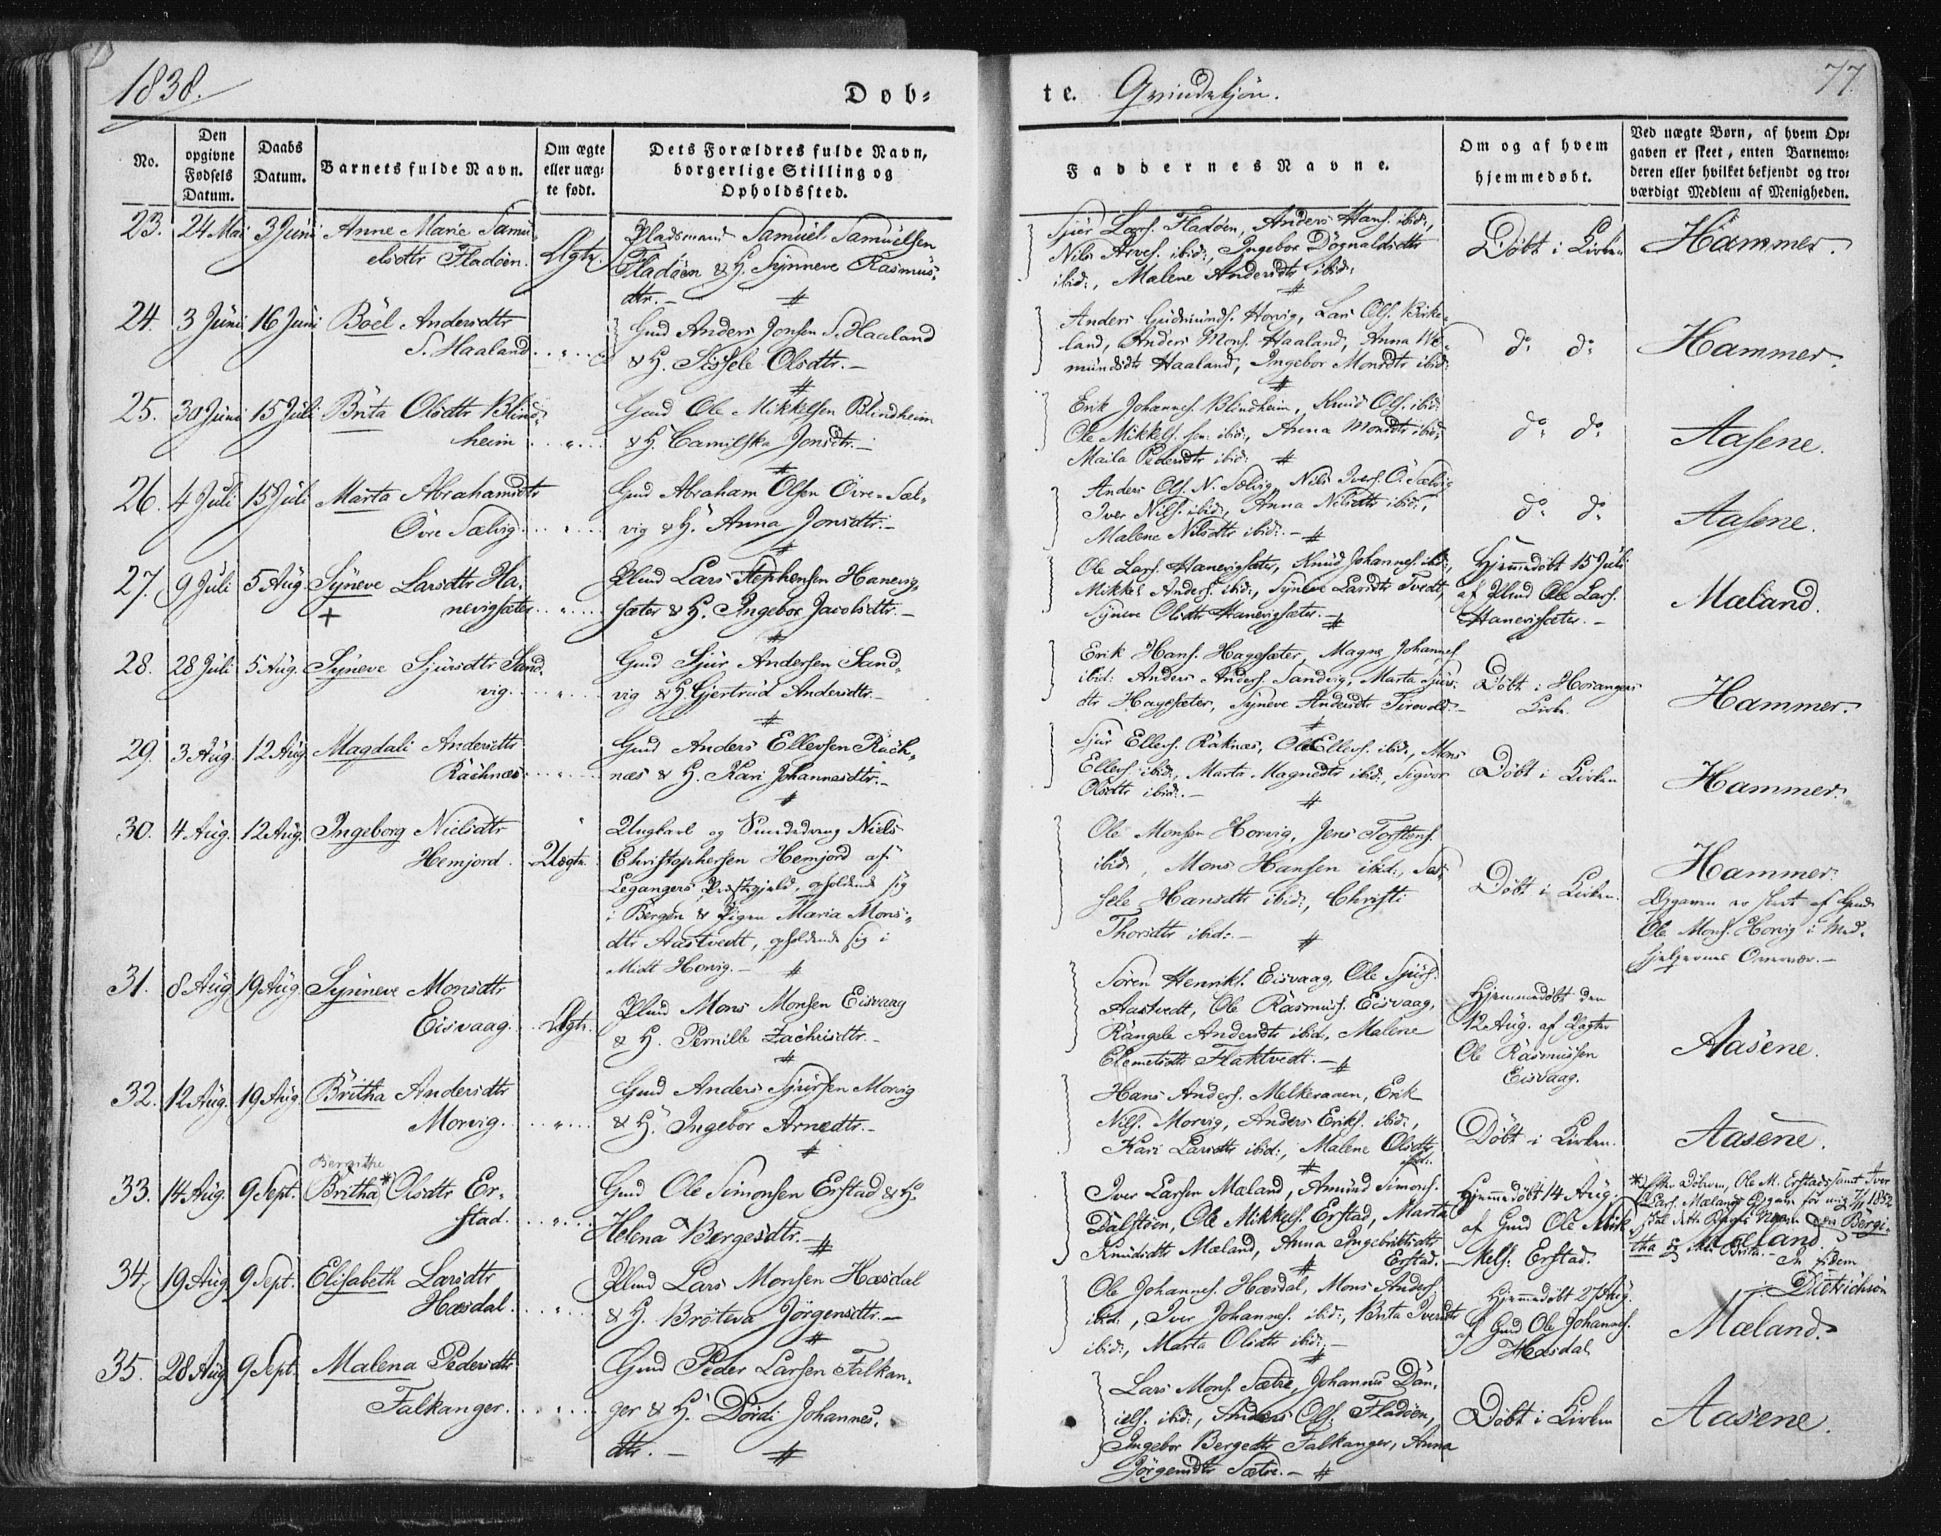 1838.
Døb-
te. Qvindekjön.
77.
No.
Den opgivne Fødsels Datum.
Daabs Datum.
Barnets fulde Navn.
Om ægte eller uægte født.
Dets Forældres fulde Navn, borgerlige Stilling og Opholdssted.
Faddernes Navne.
Om og af hvem hjemmedøbt.
Ved uægte Børn, af hvem Opgaven er skeet, enten Barnemoderen eller hvilket bekjendt og troværdigt Medlem af Menigheden.
23. 24 Mai 3 Juni Anne Marie Samu-
elsdtr Fladöen. Ægte.
Pladsmand Samuel Samuelsen
Fladöen & H. Synneve Rasmus-
dtr. -
Sjur Lars. Fladöen, Anders Hans. ibid:,
Nils Arves. ibid:, Ingebor Dögnaldsdtr
ibid:, Malene Andersdtr ibid:
Döbt i Kirken
Hammer.
24. 3 Juni 16 Juni Böel Andersdtr
S. Haaland
Gmd Anders Jonsen S. Haaland
& H. Sissele Olsdtr. -
Anders Gudmunds. Horvig, Lars Ols. Birke-
land, Anders Mons. Haaland, Anna We-
mundsdtr Haaland, Ingebor Monsdtr ibid:
do do
Hammer.
25. 30 Juni 15 Juli Brita Olsdtr Blind-
heim
Gmd Ole Mikkelsen Blindheim
& H. Camilska Jonsdtr. -
Erik Johannes. Blindheim, Knud Ols. ibid:
Ole Mikkels. sen: ibid:, Anna Monsdtr ibid:,
Maila Pedersdtr ibid:
do do
Aasene.
26. 4 Juli 15 Juli Marta Abrahamsdtr
Övre Sælvig
Gmd Abraham Olsen Övre-Sæl-
vig & H. Anna Jonsdtr. -
Anders Ols. N. Sælvig, Nils Ivers. Ö. Sælvig
Iver Nils. ibid:, Anna Nilsdtr ibid:,
Malene Nilsdtr ibid: -
do do
Aasene.
27. 9 Juli 5 Aug. Syneve Larsdtr Ha-
nevigsæter
Plmd Lars Stephensen Hanevig-
sæter & H. Ingebor Jacobsdtr. -
Ole Lars. Hanevigsæter, Knud Johannes. ibid:,
Mikkel Anders. ibid:, Syneve Larsdtr Tvedt,
Syneve Olsdtr Hanevigsæter. -
Hjemmedöbt 15 Juli
af Plmd Ole Lars.
Hanevigsæter. -
Mæland.
28. 28 Juli 5 Aug. Syneve Sjursdtr Sand-
vig.
Gmd Sjur Andersen Sand-
vig & H. Gjertrud Andersdtr. -
Erik Hans. Hagesæter, Magne Johannes.
ibid: Anders Anders. Sandvig, Marta Sjurs-
dtr Hagesæter, Syneve Andersdtr
Döbt i Hosangers
Kirke.
Hammer.
29. 3 Aug. 12 Aug. Magdali Andersdtr
Räcknæs
Gmd Anders Ellevsen Räck-
næs & H. Kari Johannesdtr. -
Sjur Ellevs. Raknæs, Ole Ellevs. ibid:, Mons
Ellevs. ibid:, Marta Magnedtr ibid:, Sigvor
Olsdtr ibid: -
Döbt i Kirken
Hammer.
30. 4 Aug. 12 Aug. Ingeborg Nielsdtr
Hemjord. Uægte.
Ungkarl og Niels
Christophersen Hemjord af
Legangers Præstegjeld, opholdende sig
i Bergen & Pigen Maria Mons-
dtr Aastvedt, opholdende sig i
Midt Horvig. -
Ole Monsen Horvig, Jens Torstens.
ibid:, Mons Hansen ibid:, Sis-
sele Hansdtr ibid:, Christi
Thorsdtr ibid: -
Döbt i Kirken.
Hammer.
Opgaven er skeet af Gmd
Ole Mons. Horvig i Med-
hjelpernes Overvær. -
31. 8 Aug 19 Aug. Synneve Monsdtr
Eisvaag. Ægte.
Plmd Mons Monsen Eisvaag
& H. Pernille Zachrisdtr. -
Sören Henriks. Eisvaag, Ole Sjurs.
Aastvedt, Ole Rasmus. Eisvaag,
Rangele Andersdtr ibid:, Malene
Clemetsdtr Flaktvedt. -
Hjemmedöbt den
12 Aug. af
Ole Rasmussen
Eisvaag.
Aasene.
32. 12 Aug. 19 Aug. Britha Andersdtr
Morvig.
Gmd Anders Sjursen Morvig
& H. Ingebor Arnedtr. -
Hans Anders. Melkeraaen, Erik
Nils. Morvig, Anders Eriks. ibid:,
Kari Larsdtr ibid:, Malene Olsdtr
ibid:
Döbt i Kirken.
Aasene.
Bergithe
33. 14 Aug. 9 Sept. Britha* Olsdtr Er-
stad.
Gmd Ole Simonsen Erstad & H.
Helena Bergesdtr. -
Iver Larsen Mæland, Amund Simons.
Dalstöen, Ole Mikkels. Erstad, Marta
Knudsdtr Mæland, Anna Ingebrittsdtr
Erstad. -
Hjemmedöbt 14 Aug.
af Gmd Ole Mik-
kels. Erstad.
* Ole M. Erstads samt Iver
Lars. Mælands Opgave for mig 1852
skal dette Navn være Bergi-
tha og ikke Britha. -
Mæland
In fidem
Dietrichson
34. 19 Aug 9 Sept. Elisabeth Larsdtr
Hæsdal.
Plmd Lars Monsen Hæsdal
& H. Bröteva Jörgensdtr. -
Ole Johannes. Hæsdal, Mons Anders.
ibid:, Iver Johannes. ibid:, Brita Iversdtr
ibid:, Marta Olsdtr ibid: -
Hjemmedöbt 27 Aug.
af Gmd Ole Johannes.
Hæsdal
Mæland.
35. 28 Aug 9 Sept. Malena Pedersdtr
Falkanger.
Gmd Peder Larsen Falkan-
ger & H. Dordi Johannes-
dtr. -
Lars Mons. Sætre, Johannes Dan-
iels. ibid:, Anders Ols. Fladöen,
Ingebor Bergedtr Falkanger, Anna
Jörgensdtr Sætre. -
Döbt i Kirken
Aasene.